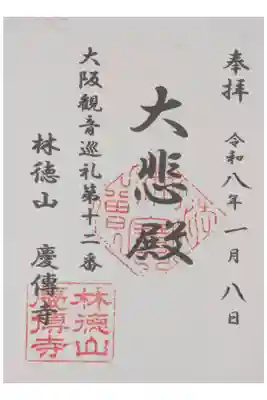 奉拝 令和八年一月八日
大悲殿
大阪観音巡礼第十二番
林徳山 慶傳寺
林徳山
慶傳寺